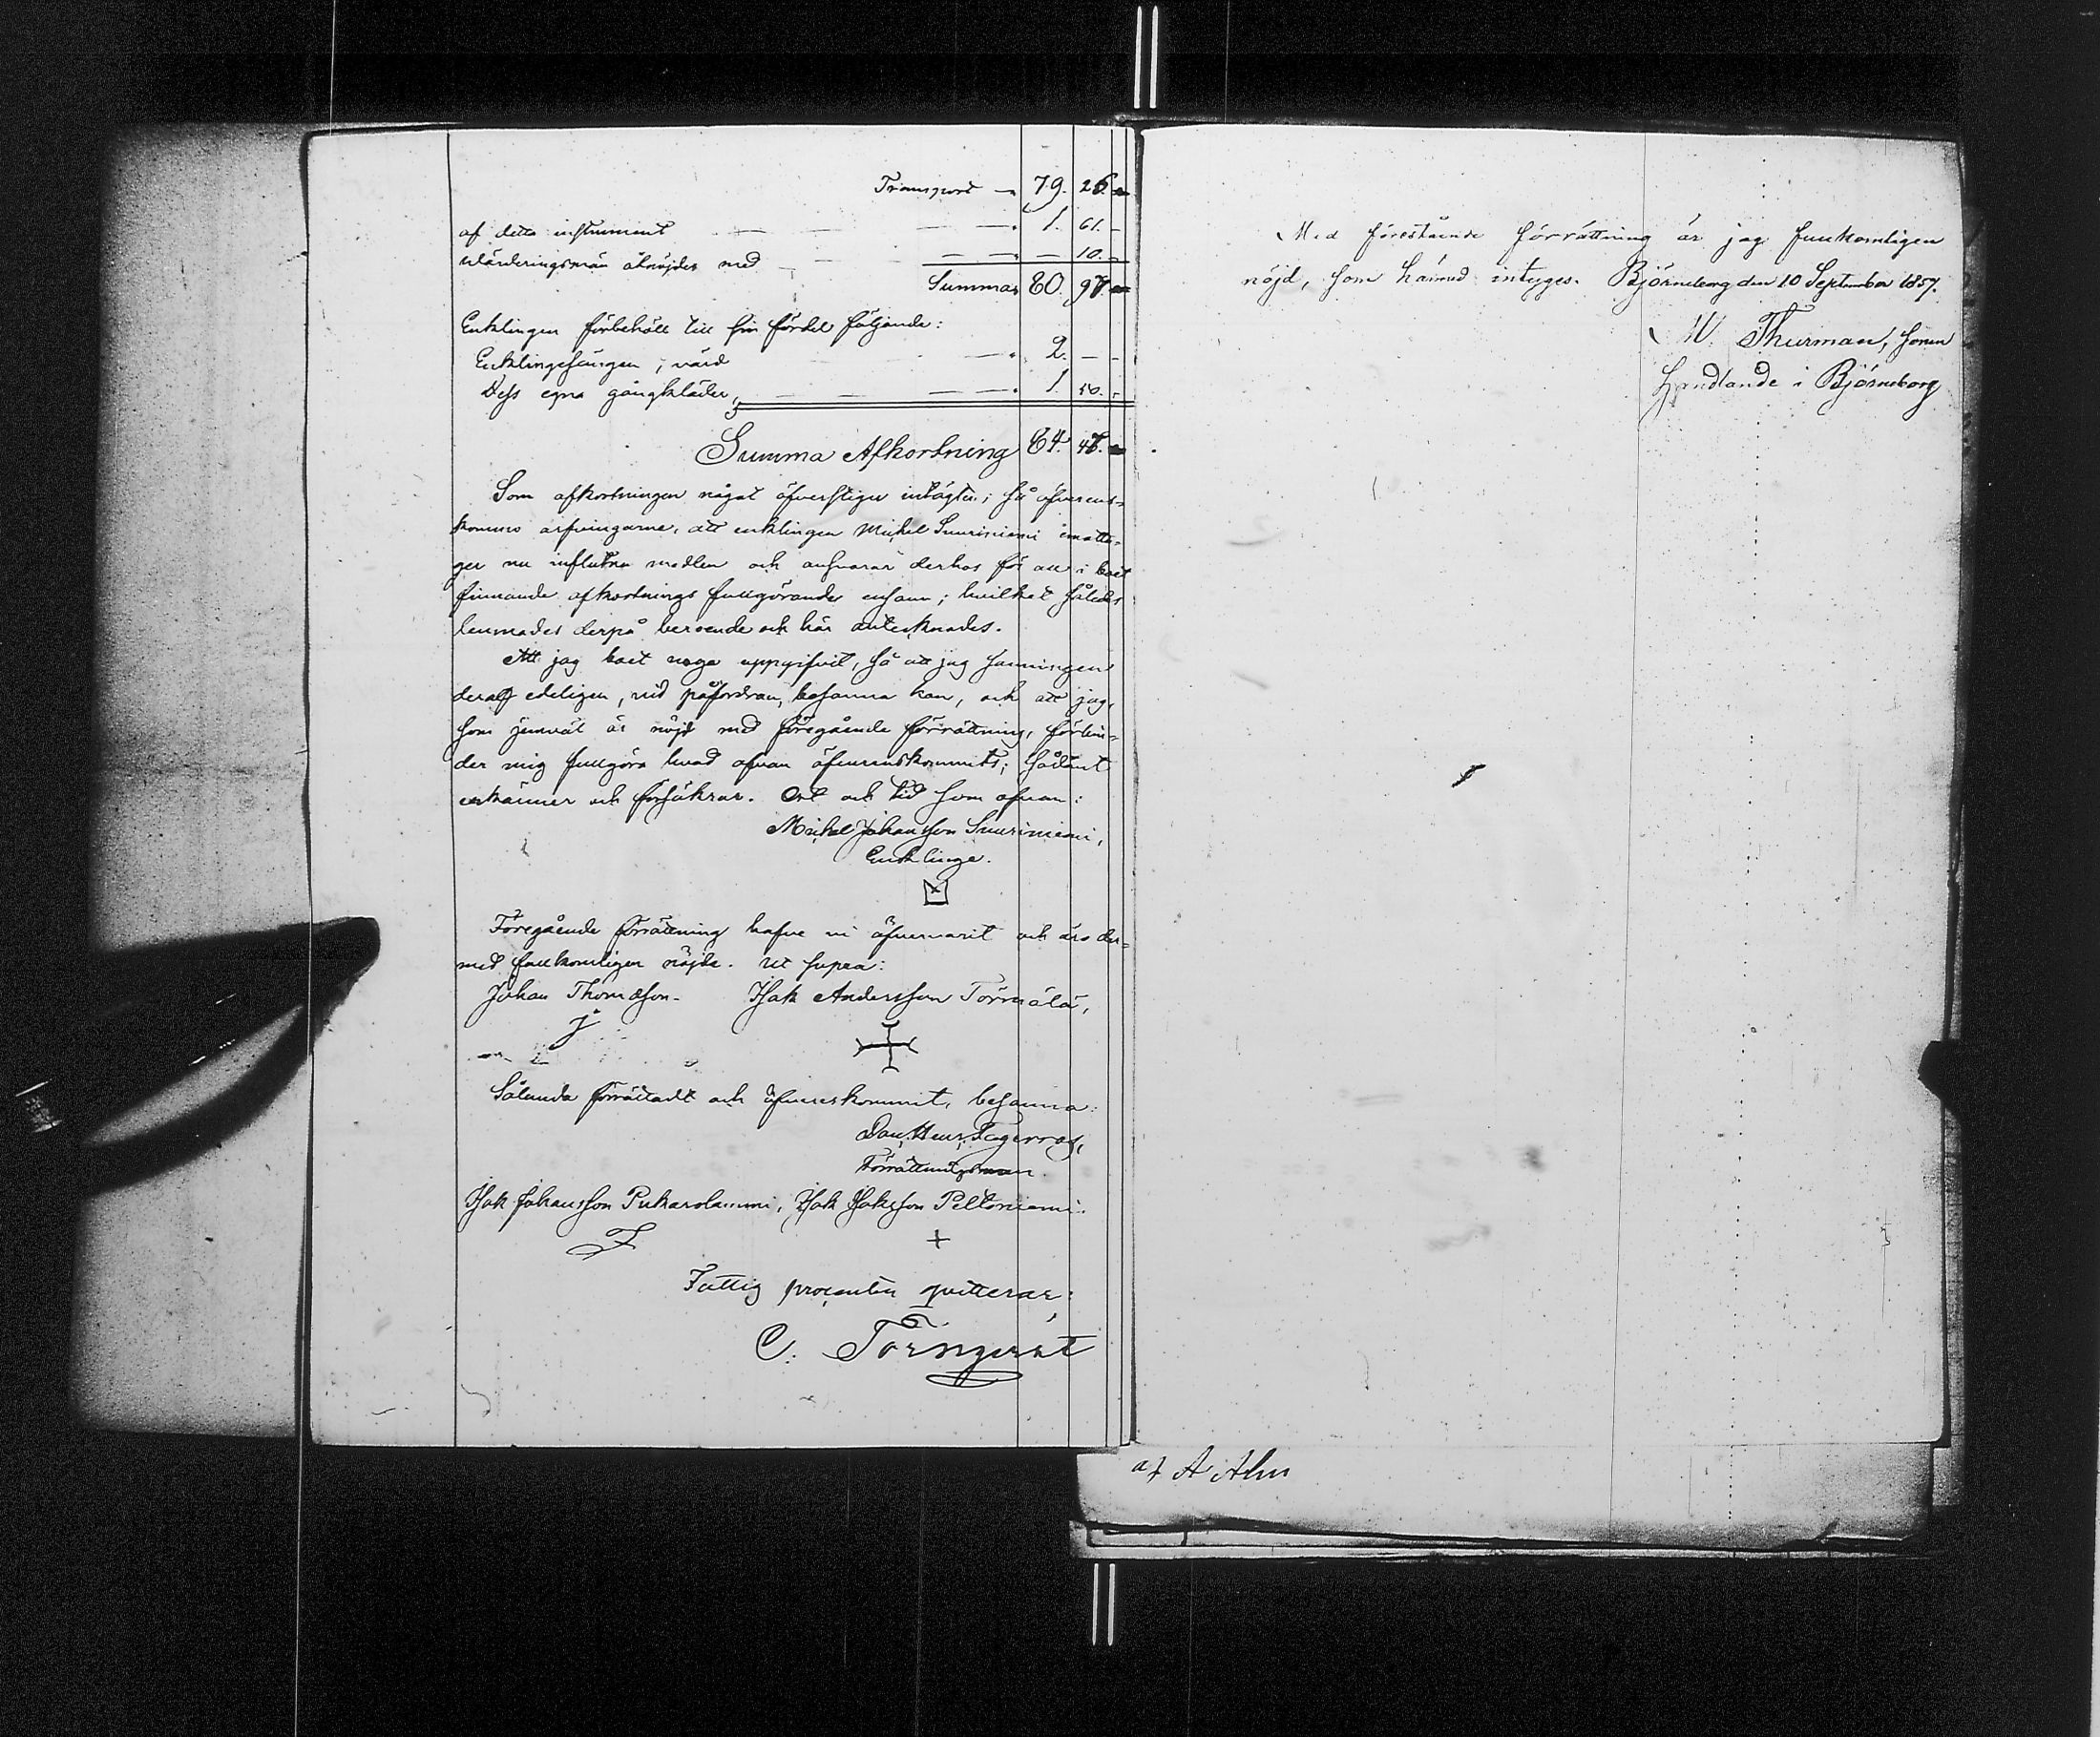 Transport — 79. 26. —
af detta instrument — — — 1. 61. —
wärderingsmän åtnöjdes med — — — 10. —
Summa 80. 97. —
Enklingen förbehöll till sin fördel följande:
Enklingesängen, värd — 2. — —
Dess egna gångkläder, — — — 1. 50. —
Summa Afkortning 84. 47. —
Som afkortningen något öfverstiger intägten; så öfverens-
kommo arfvingarne, att enklingen Michel Suuriniemi emotta-
ger nu influtna medlen och ansvarar derhos för all i boet
finnande afkortnings fullgörande ensam; hvilket således
lemnades derpå beroende och här antecknades.
Att jag boet noga uppgifvit, så att jag sanningen
deraf edeligen, vid påfordran, besanna kan, och att jag,
som jemväl är nöjd med föregående förrättning, förbin-
der mig fullgöra hvad ofvan öfverenskommits; sådant
erkänner och försäkrar. Ort och tid som ofvan:
Michel Johansson Suuriniemi,
Enklinge.
Föregående förrättning hafve vi öfvervarit och äro der-
med fullkomligen nöjde. Ut supra:
Johan Thomasson. Isak Andersson Törmälä,
Sålunda förrättadt och öfverenskommit, besanna:
Dan. Henr. Fagerroos,
Förrättningsman
Isak Johansson Pukarolammi, Isak Isaksson Peltoniemi.
Fattig procenten qvitterar:
C. Törnqvist
Med förestående förrättning är jag fullkomligen
nöjd, som härmed intyges. Björneborg den 10 September 1857.
M. Thurman, sonen
Handlande i Björneborg
af A Alm